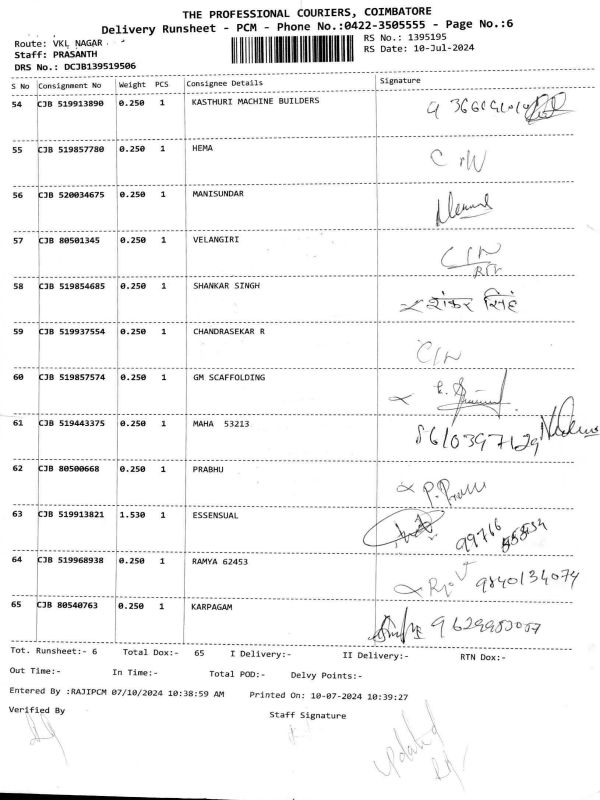 THE PROFESSIONAL COURIERS, COIMBATORE
Delivery Runsheet - PCM - Phone No.:0422-3505555 - Page No.:6
Route: VKL NAGAR
RS No.: 1395195
Staff: PRASANTH
RS Date: 10-Jul-2024
DRS No.: DCJB139519506
S No Consignment No Weight PCS Consignee Details Signature
54 CJB 519913890 0.250 1 KASTHURI MACHINE BUILDERS
55 CJB 519857780 0.250 1 HEMA
56 CJB 520034675 0.250 1 MANISUNDAR
57 CJB 80501345 0.250 1 VELANGIRI C/N
58 CJB 519854685 0.250 1 SHANKAR SINGH शंकर सिंह
59 CJB 519937554 0.250 1 CHANDRASEKAR R C/N
60 CJB 519857574 0.250 1 GM SCAFFOLDING
61 CJB 519443375 0.250 1 MAHA 53213 8610397129
62 CJB 80500668 0.250 1 PRABHU
63 CJB 519913821 1.530 1 ESSENSUAL
64 CJB 519968938 0.250 1 RAMYA 62453 9840134074
65 CJB 80540763 0.250 1 KARPAGAM
Tot. Runsheet:- 6 Total Dox:- 65 I Delivery:- II Delivery:- RTN Dox:-
Out Time:- In Time:- Total POD:- Delvy Points:-
Entered By :RAJIPCM 07/10/2024 10:38:59 AM Printed On: 10-07-2024 10:39:27
Verified By Staff Signature
updated